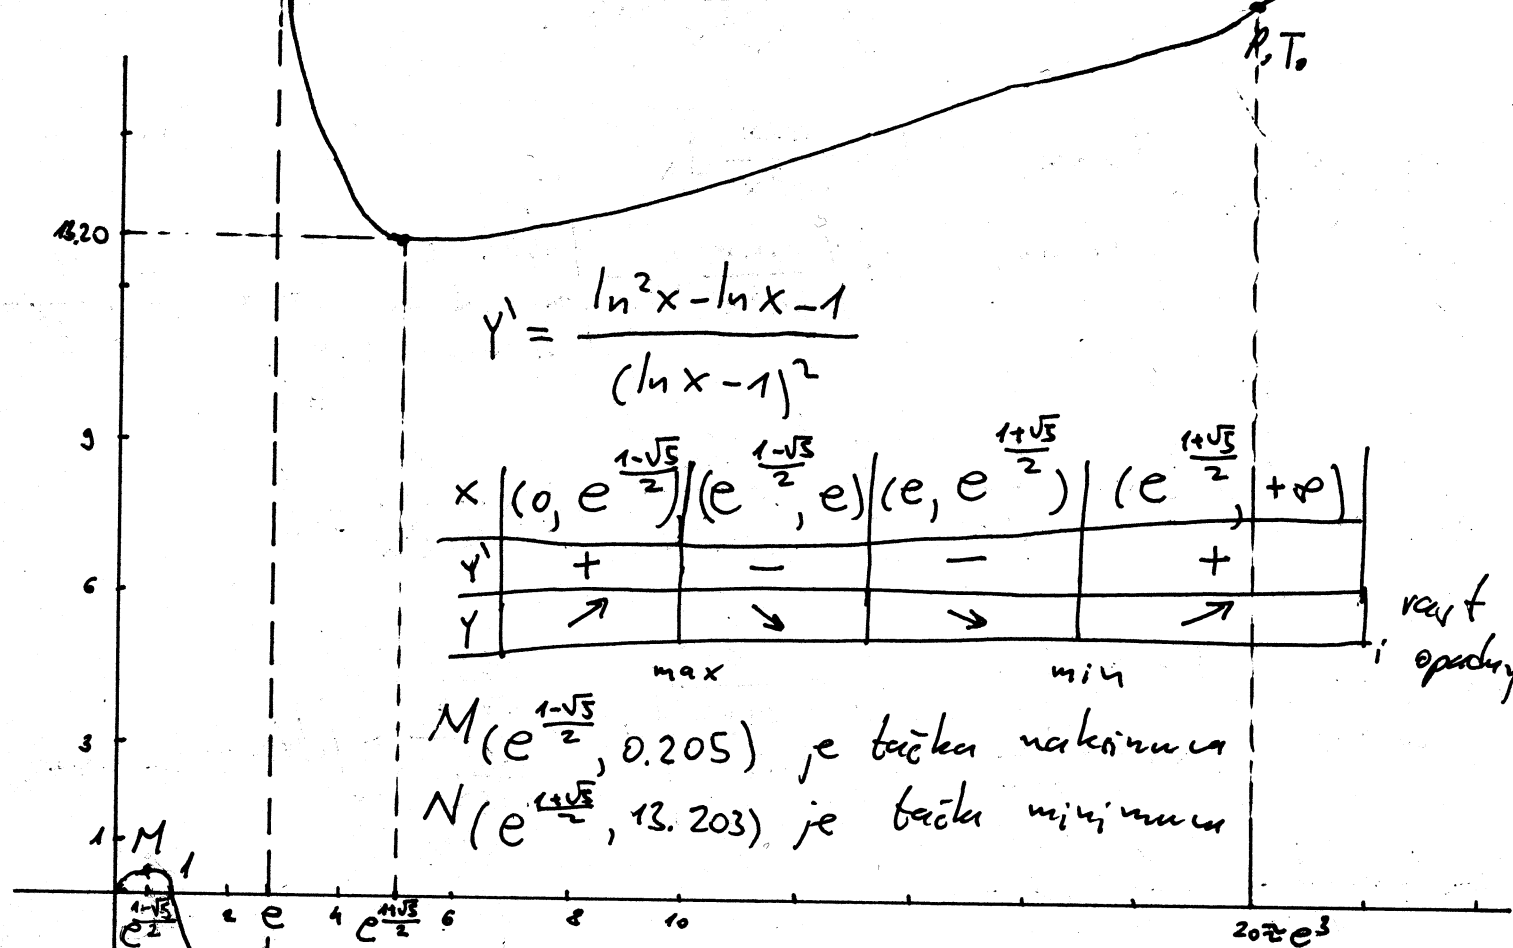 R, T.
13,20
Y' = \frac{ln²x - ln x - 1}{(ln x - 1)²}
9
x | (0, e^{\frac{1-√5}{2}}) | (e^{\frac{1-√5}{2}}, e) | (e, e^{\frac{1+√5}{2}}) | (e^{\frac{1+√5}{2}}, +∞)
6
Y' | + | - | - | +
Y | ↗ | ↘ | ↘ | ↗
rast
i
max min
M(e^{\frac{1-√5}{2}}, 0.205) je tačka maksimuma
3
N(e^{\frac{1+√5}{2}}, 13.203) je tačka minimuma
1 M 1
e^{\frac{1-√5}{2}} 2 e 4 e^{\frac{1+√5}{2}} 6 8 10 20≈e³